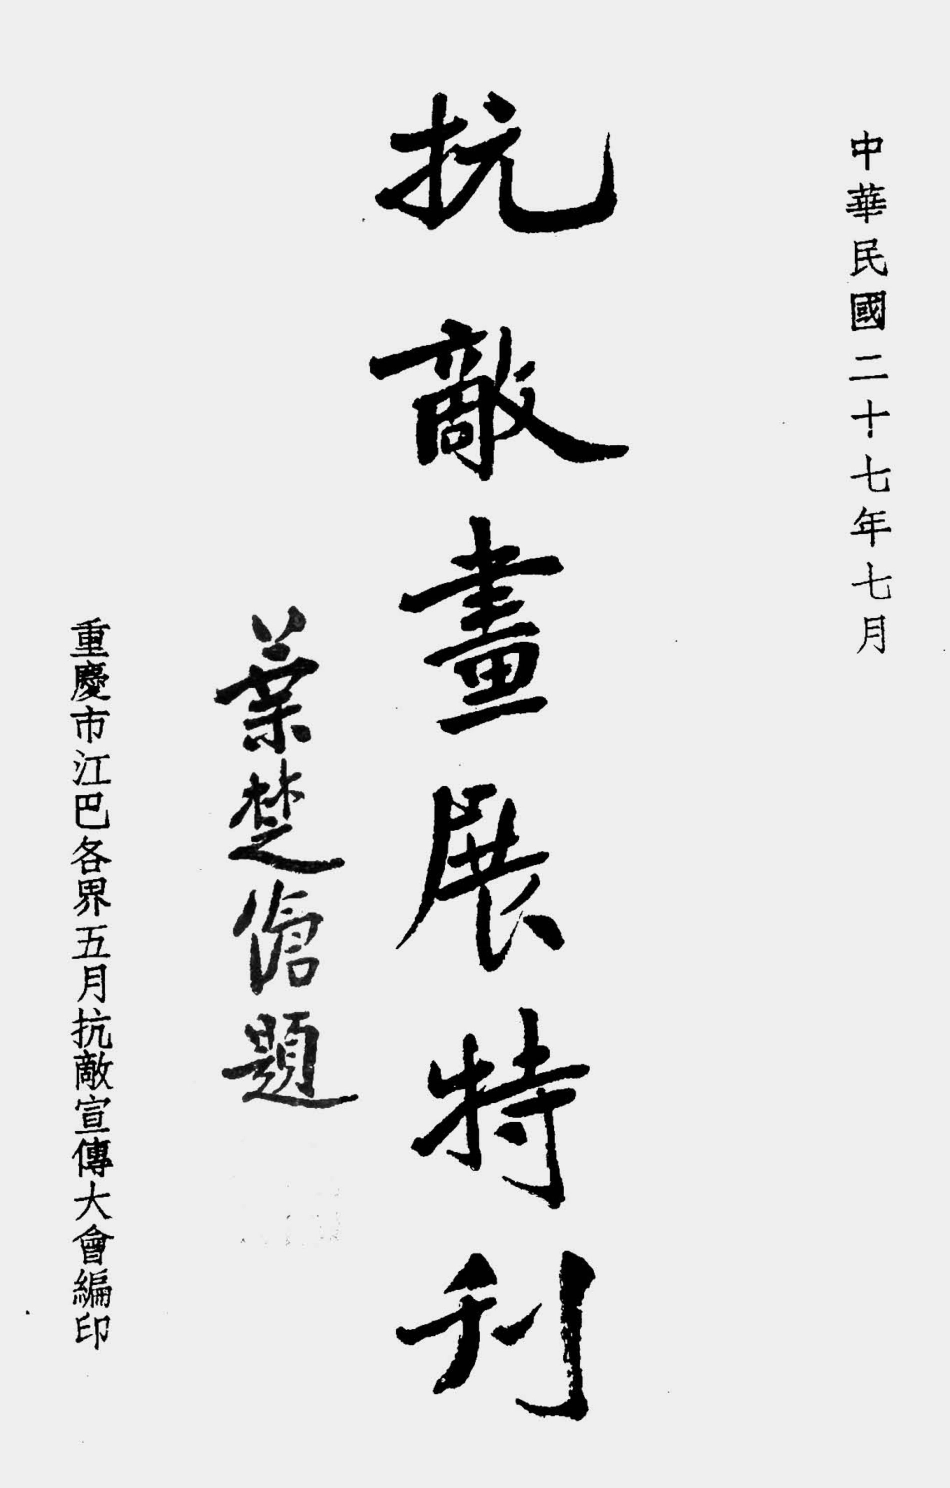 中華民國二十七年七月
抗敵畫展特刊
葉楚傖題
重慶市江巴各界五月抗敵宣傳大會編印